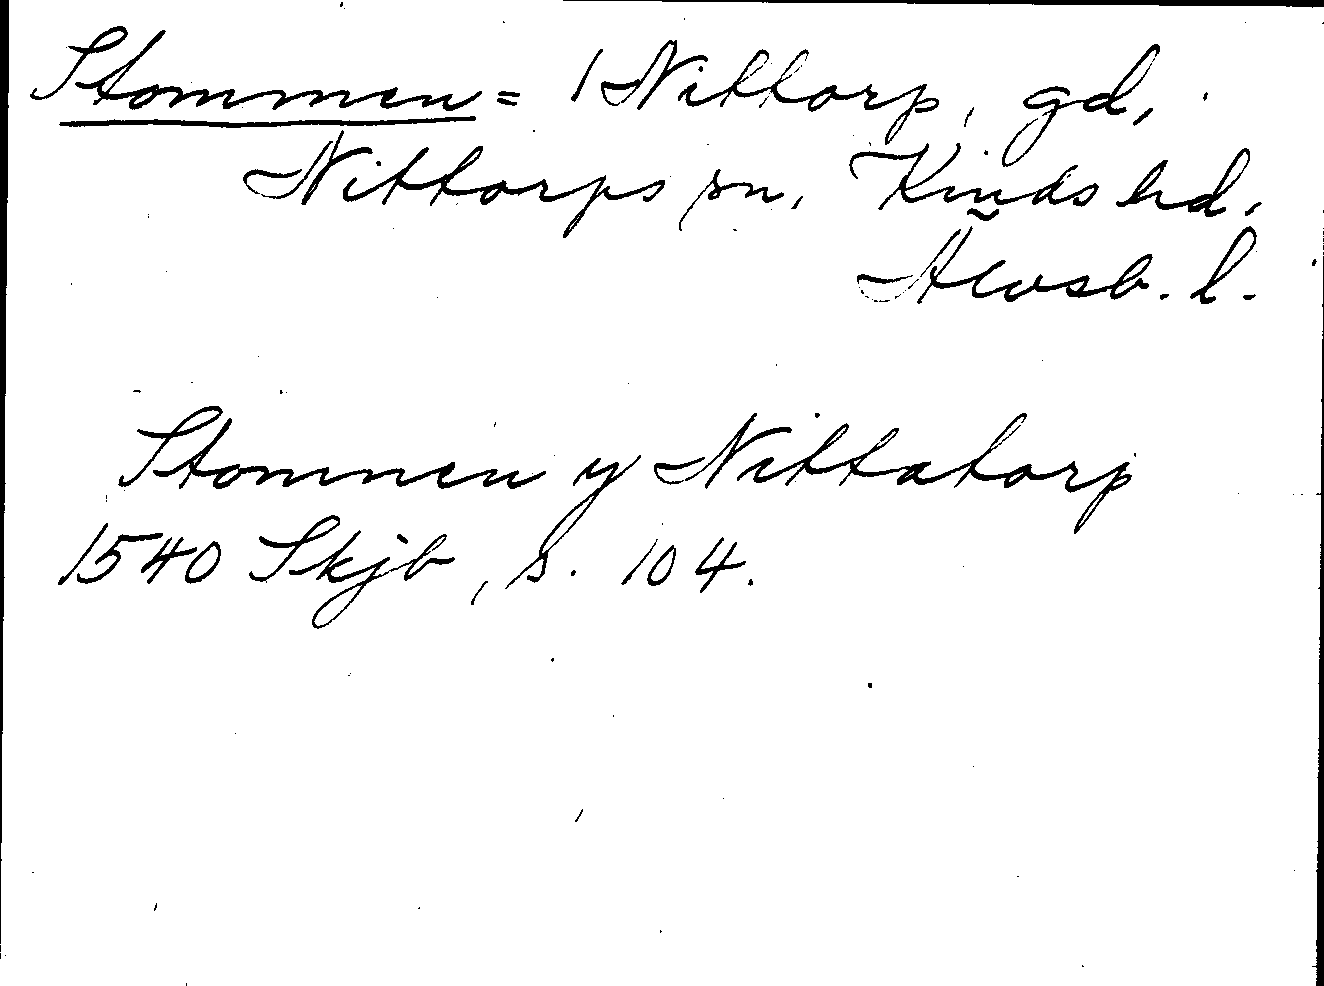 Stommen = 1 Nittorp, gd,
Nittorps sn, Kinds hd,
Älvsb. l.
Stommen y Nittatorp
1540 Skjb, s. 104.